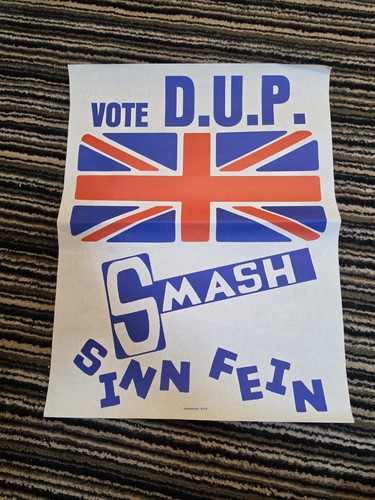 VOTE D.U.P.
SMASH
SINN FEIN